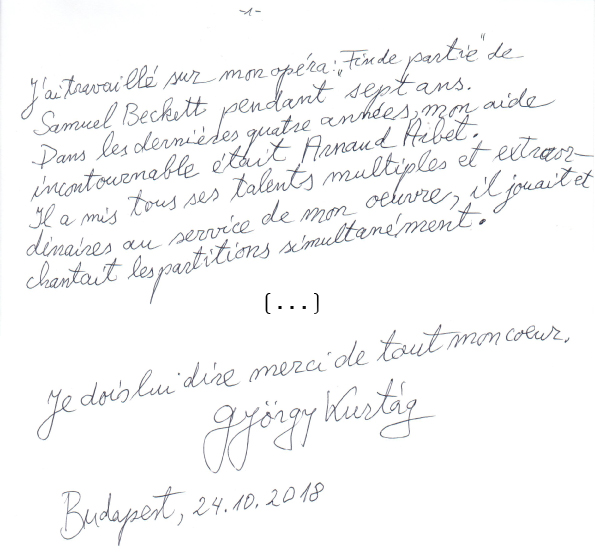 -1-
J'ai travaillé sur mon opéra: „Fin de partie" de
Samuel Beckett pendant sept ans.
Dans les dernières quatre années, mon aide
incontournable était Arnaud Arbet.
Il a mis tous ses talents multiples et extraor-
dinaires au service de mon oeuvre, il jouait et
chantait les partitions simultanément.
(...)
Je dois lui dire merci de tout mon coeur.
György Kurtág
Budapest, 24.10.2018